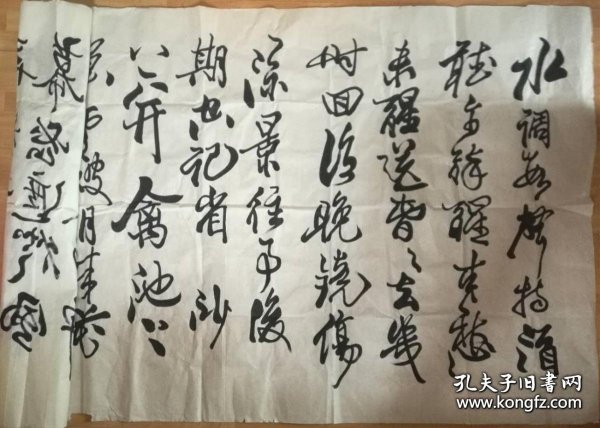 水調数声持酒
聴午醉醒来愁
未醒送春〻去幾
时回临晚镜傷
流景往事後
期空记省沙
上并禽池上
破月来花
幕密遮
孔夫子旧书网
www.kongfz.com